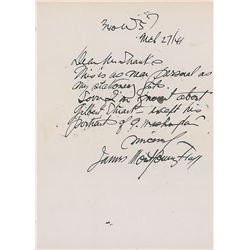 240 W 57
Mch 27/41
Dear Mr Shaske
This is as near personal as
my stationery gets.
Sorry I'm ignorant about
Gilbert Stuart except his
portrait of G. Washington
Sincerely
James Montgomery Flagg